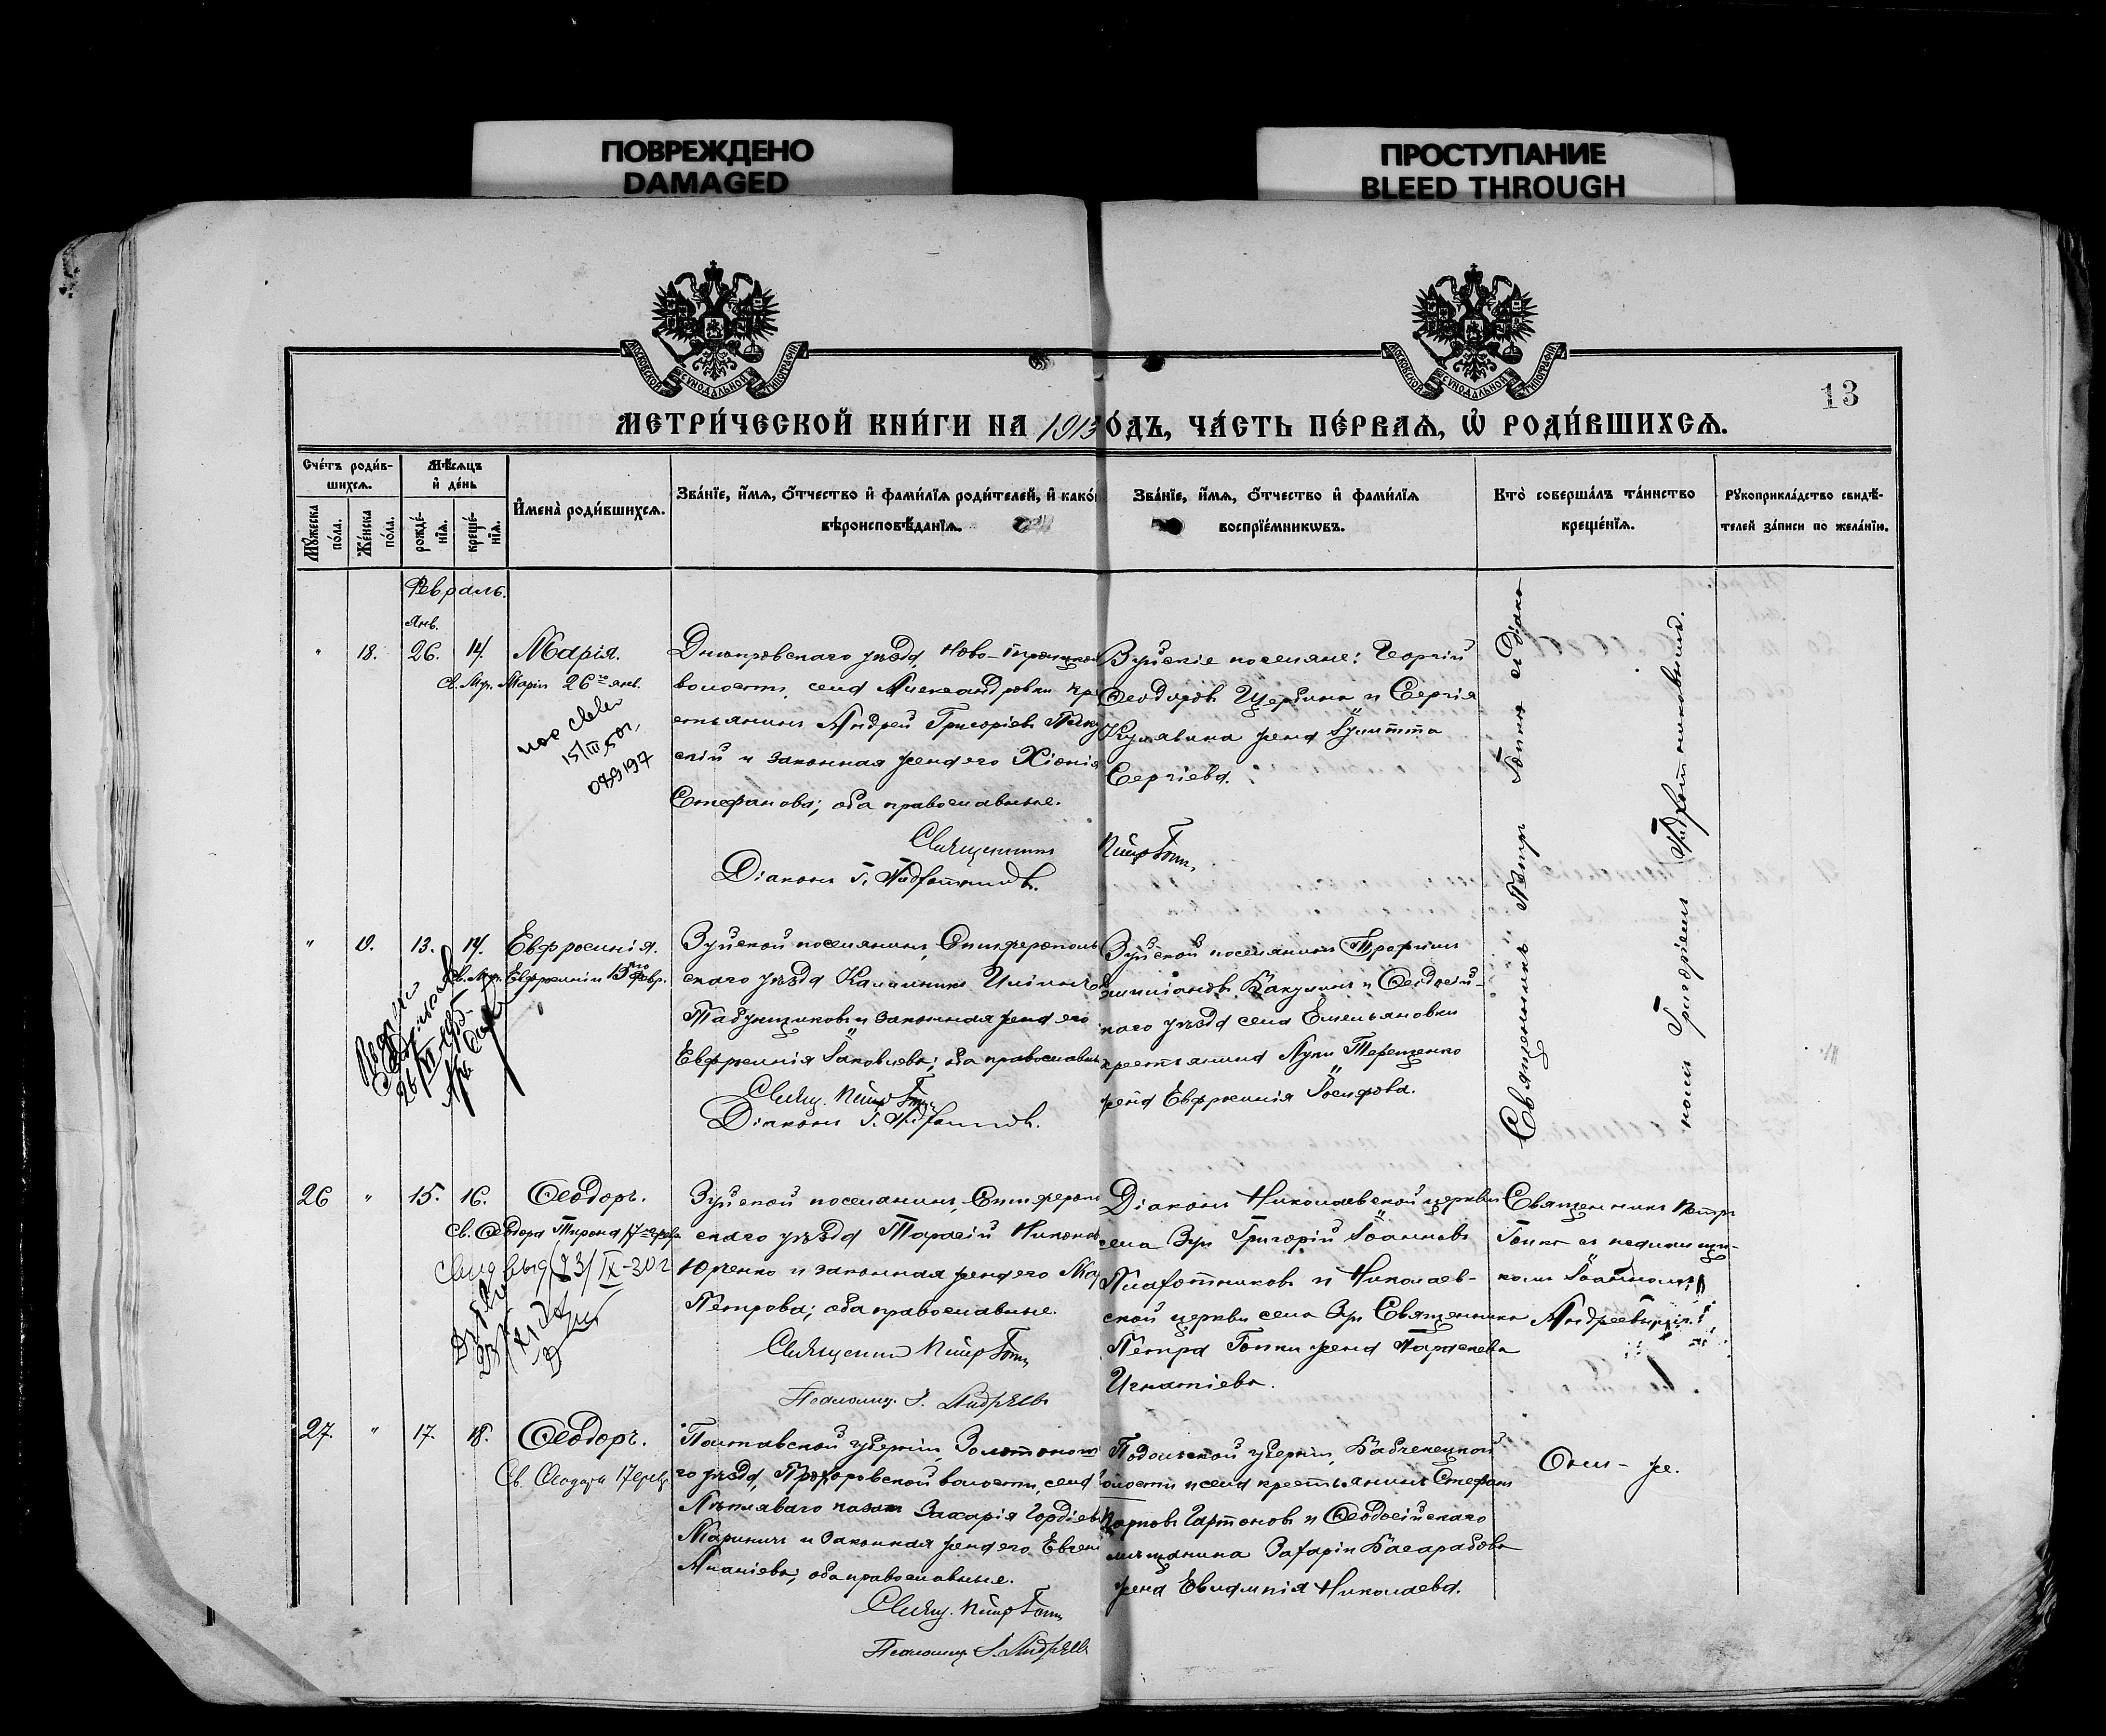 ПОВРЕЖДЕНО
DAMAGED
ПРОСТУПАНИЕ
BLEED THROUGH
МОСКОВСКОЙ СѴНОДАЛЬНОЙ ТИПОГРАФІИ
МОСКОВСКОЙ СѴНОДАЛЬНОЙ ТИПОГРАФІИ
13
МЕТРИ́ЧЕСКОЙ КНИ́ГИ НА 1913 ГО́ДЪ, ЧА́СТЬ ПЕ́РВАѦ, Ѡ҆ РОДИ́ВШИХСѦ.
Счётъ роди́в-
шихсѧ.
Мѣ́сѧцъ
и҆ де́нь
Мꙋ́жеска
по́ла.
Же́нска
по́ла.
рожде́-
нїѧ.
креще́-
нїѧ.
И҆мена̀ роди́вшихсѧ.
Зва́нїе, и҆́мѧ, ѻ҆́тчество и҆ фами́лїѧ роди́телей, и҆ како́
вѣроисповѣ́данїѧ.
Зва́нїе, и҆́мѧ, ѻ҆́тчество и҆ фами́лїѧ
воспрїе́мникѡвъ.
Кто̀ соверша́лъ та́инство
креще́нїѧ.
Рꙋкоприкла́дство свидѣ́-
телей за́писи по жела́нїю.
Февраль.
Янв.
" 18. 26. 14. Марія.
Св. Муч. Маріи 26го янв.
15/III 50г.
079197
Днѣпровскаго уѣзда, Ново-Троицкой
волости, села Александровки кре
стьянинъ Андрей Григоріевъ
скій и законная жена его Хіонія
Стефанова; оба православные.
Священникъ Петръ Гопка
Діаконъ Г. Плаfотниковъ.
Зуйскіе поселяне: Георгій
Ѳеодоровъ Щербина и Сергія
жена Іулитта
Сергіева.
Священникъ Петръ Гопка съ діако
номъ Григоріемъ Плахотниковымъ.
" 19. 13. 14. Евфросинія.
Св. Муч. Евфросиніи 13го Февр.
Зуйской поселянинъ, Симферополь
скаго уѣзда Калинникъ
Табунщиковъ и законная жена его
Евфросинія Іаковлева; оба православные
Свящ. Петръ Гопка
Діаконъ Г. Плахотниковъ.
Зуйской поселянинъ Трофимъ
Вакулинъ и Ѳеодосій-
скаго уѣзда села Емельяновки
крестьянина Луки Терещенко
жена Евфросинія Іосифова.
26 " 15. 16. Ѳеодоръ.
Св. Ѳеодора Тирона 17го февр.
IX-30г
Зуйской поселянинъ, Симферополь
скаго уѣзда Тарасій Никоновъ
Юрченко и законная жена его
Петрова; оба православные.
Священникъ Петръ Гопка
Псаломщ. І. Андреевъ
Діаконъ Николаевской церкви
села Зуи Григорій Іоанновъ
Плахотниковъ и Николаев-
ской церкви села Зуи Священника
Петра Гопки жена Параскева
Игнатіева.
Священникъ Петръ
Гопка съ псаломщи-
комъ Іоанномъ
Андреевымъ.
27. " 17. 18. Ѳеодоръ.
Св. Ѳеодора 17 февр.
Полтавской губерніи, Золотонош
го уѣзда, Прохоровской волости, села
Лѣпляваго казакъ Захарія Гордіевъ
Маринич и законная жена его Евгенія
Ананіева; оба православные.
Свящ. Петръ Гопка
Псаломщ. І. Андреевъ
Подольской губерніи, Бабчинецкой
волости и села крестьянинъ Стефанъ
и Ѳеодосійскаго
мѣщанина Захаріи Басарабова
жена Евламнія Николаева.
Они-же.